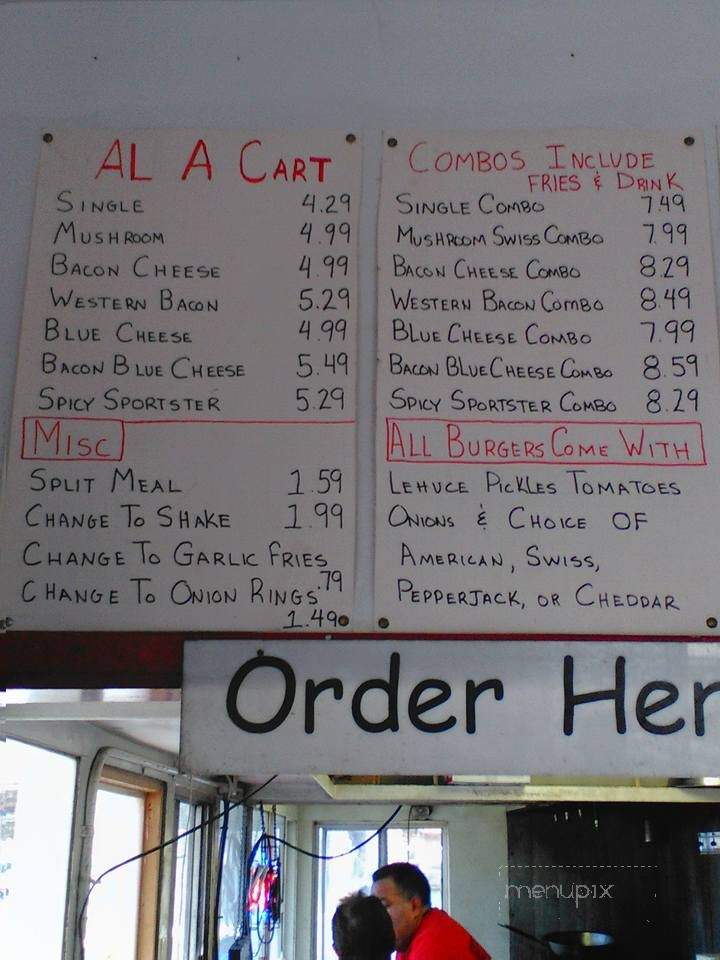 AL A CART
SINGLE 4.29
MUSHROOM 4.99
BACON CHEESE 4.99
WESTERN BACON 5.29
BLUE CHEESE 4.99
BACON BLUE CHEESE 5.49
SPICY SPORTSTER 5.29
MISC
SPLIT MEAL 1.59
CHANGE TO SHAKE 1.99
CHANGE TO GARLIC FRIES
.79
CHANGE TO ONION RINGS
1.49
COMBOS INCLUDE
FRIES & DRINK
SINGLE COMBO 7.49
MUSHROOM SWISS COMBO 7.99
BACON CHEESE COMBO 8.29
WESTERN BACON COMBO 8.49
BLUE CHEESE COMBO 7.99
BACON BLUE CHEESE COMBO 8.59
SPICY SPORTSTER COMBO 8.29
ALL BURGERS COME WITH
LEHUCE PICKLES TOMATOES
ONIONS & CHOICE OF
AMERICAN, SWISS,
PEPPERJACK, OR CHEDDAR
Order Her
menupix